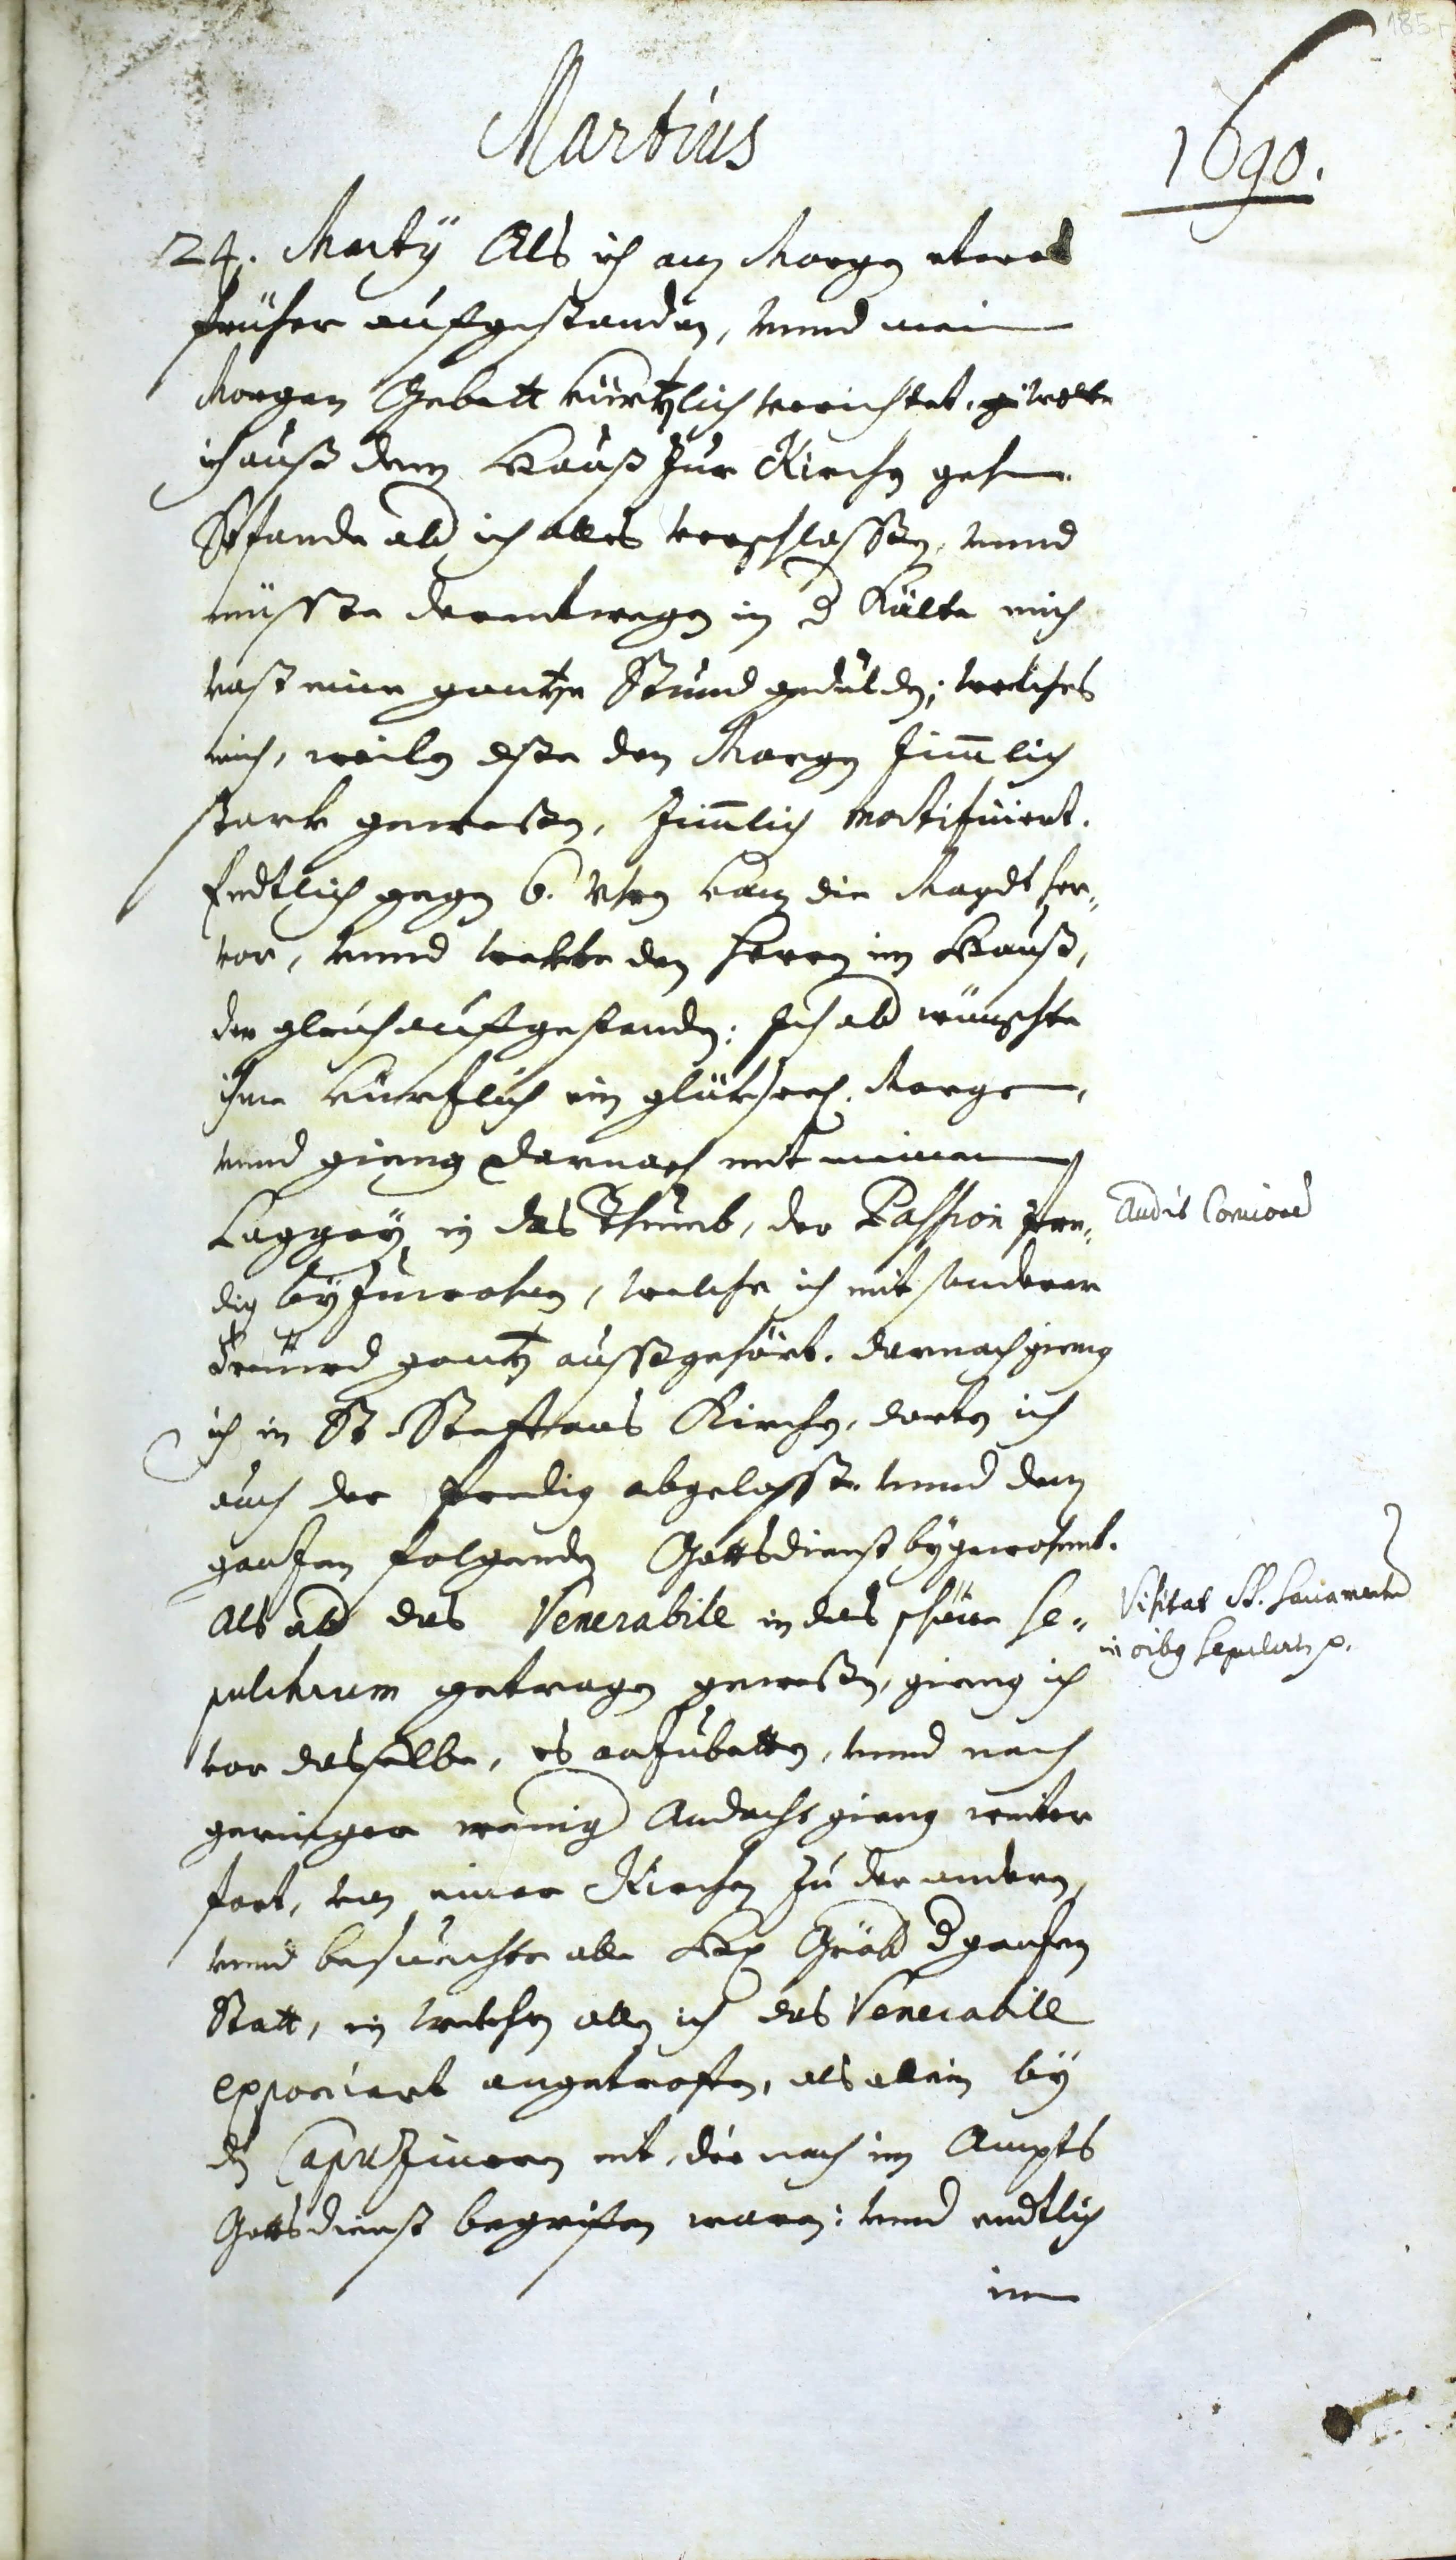 185r
Martius
1690.
24. Martÿ Als ich am Morgen etwas
früher aufgestanden, vnnd mein
Morgen Gebett kürtzlich verrichtet, wolte
ich auß dem Hauß zur Kirchen gehen.
Ich fande ab̄ alles verschlossen, vnnd
müsste derentwegen in d Kälte mich
vast eine gantze Stund gedulden; welches
mich, weilen den Morgen zim̄lich
stark gewessen, zim̄lich mortificiert.
Endtlich gegen 6. Vhren kam die Magdt her„
vor, vnnd wekte den Herren im Hauß,
der gleich aufgestanden: Ich ab̄ wünschte
ihme kürtzlich ein glükseel. Morgen,
vnnd gieng darnach mit meinem
Laggey in das Thumb, der Passion Pre„
dig byzuwohnen, welche ich mit sonderer
Freüwd gantz aussgehört. darnach gieng
ich in St. Steffans Kirchen, dorten ich
auch der Predig abgelosst, vnnd dem
gantzen folgenden Gottsdienst bygewohnt.
Als ab̄ das Venerabile in das schöne se„
pulchrum getragen gewessen, gieng ich
vor dasselbe, es anzubetten, vnnd nach
geringer weniḡ Andacht gieng weiter
fort, von einer Kirchen zu der andern,
vnnd besuechte alle Gräb̄ d gantzen
Statt, in welchen allen ich das Venerabile
exponiert angetroffen, als allein by
dē Capuzinern nit, die noch im Ampts
Gottsdienst begriffen waren: vnnd endtlich
im
Audit Concionē
Visitat SS. Sacramentū
in oībq sepulchris.